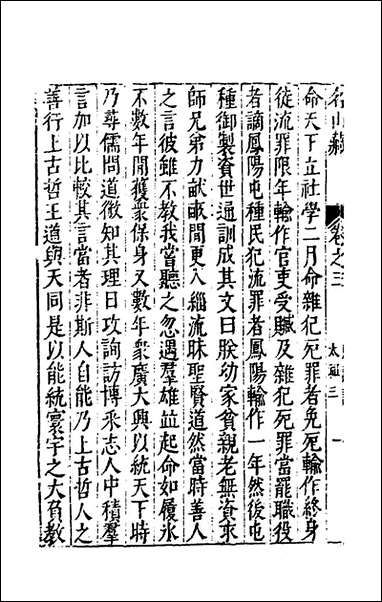 名山藏
卷之三
太祖三
一
命天下立社學二月命雜犯死罪者免死輸作終身
徒流罪限年輸作官吏受贓及雜犯死罪當罷職役
者謫鳳陽屯種民犯流罪者鳳陽輸作一年然後屯
種御製資世通訓成其文曰朕幼家貧親老無資求
師兄弟力献畝間更入緇流昧聖賢道然當時善人
之言彼雖不教我嘗聽之忽遇羣雄竝起命如履氷
不數年間獲衆保身又數年衆廣大興以統天下時
乃尋儒問道微知其理日攻詢訪博采志人中積羣
言加以比較其言當者非斯人自能乃上古哲人之
善行上古哲王道與天同是以能統寰宇之大負教